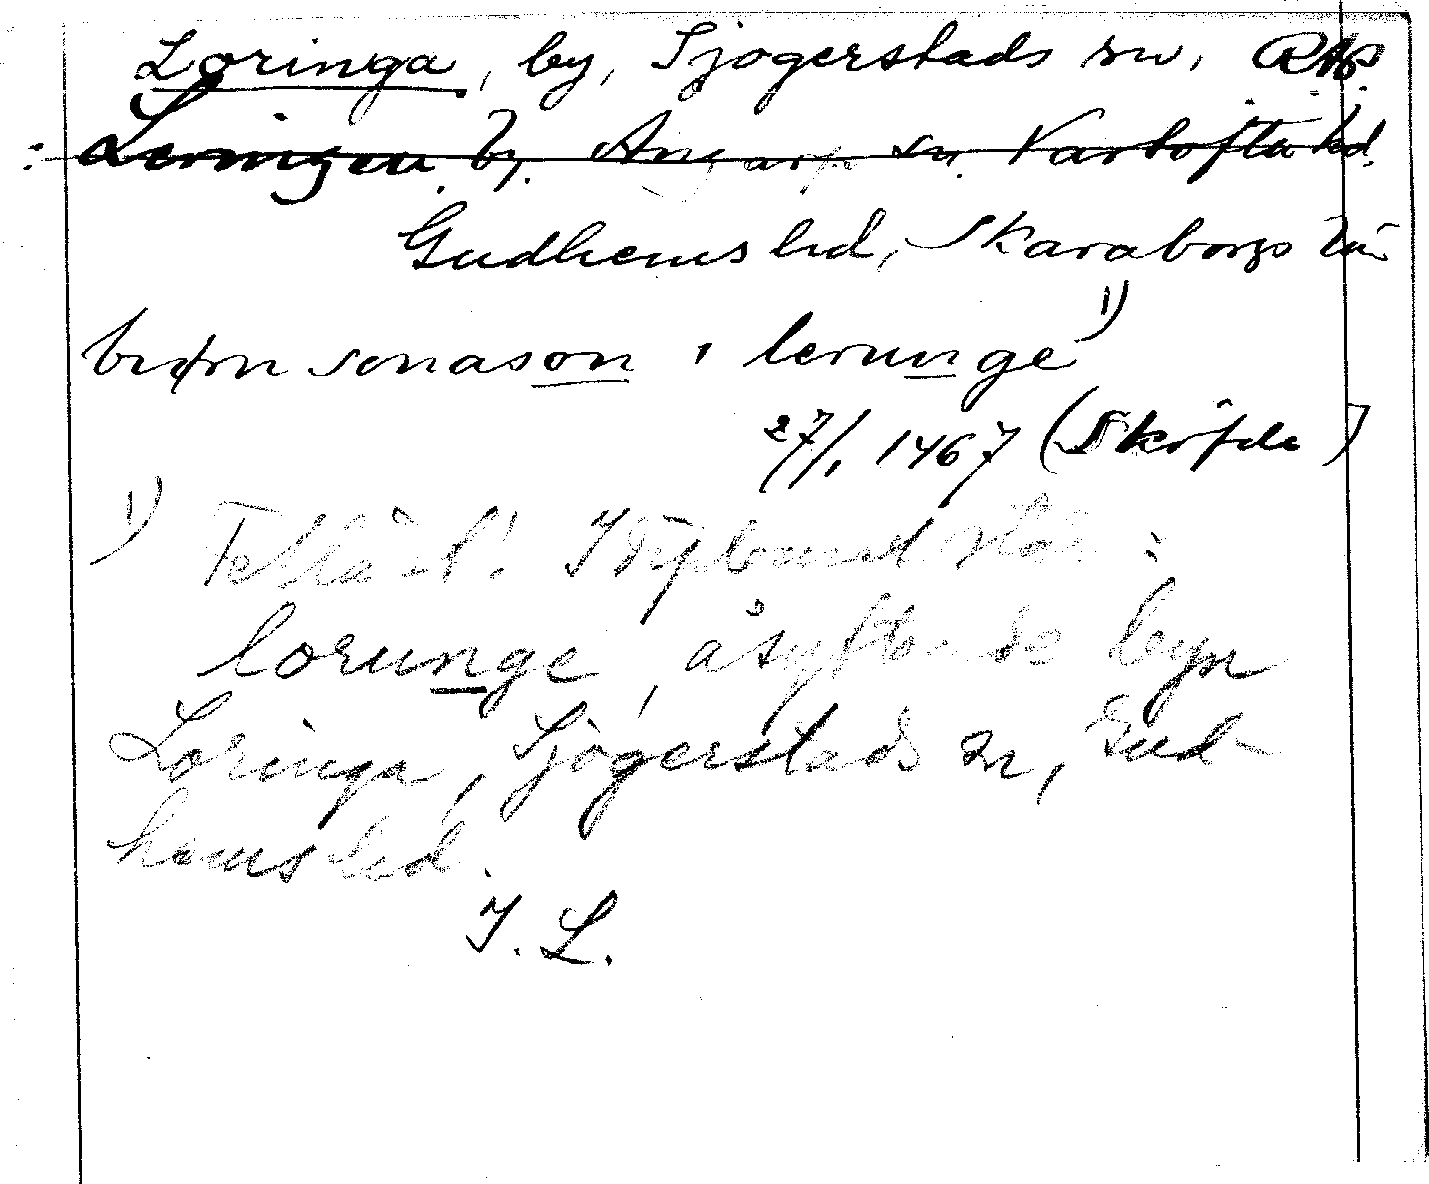 Loringa, by, Sjögerstads sn, RAP.
Leringen by. Angarp sn. Vartofta hd.
Gudhems hd, Skaraborgs län
biørn jonason i lerunge 1)
27/1 1467 (Sköfde)
1) Felläst! I diplomet står:
lorunge, åsyftande byn
Loringa, Sjögerstads sn, Gud-
hems hd.
I. L.